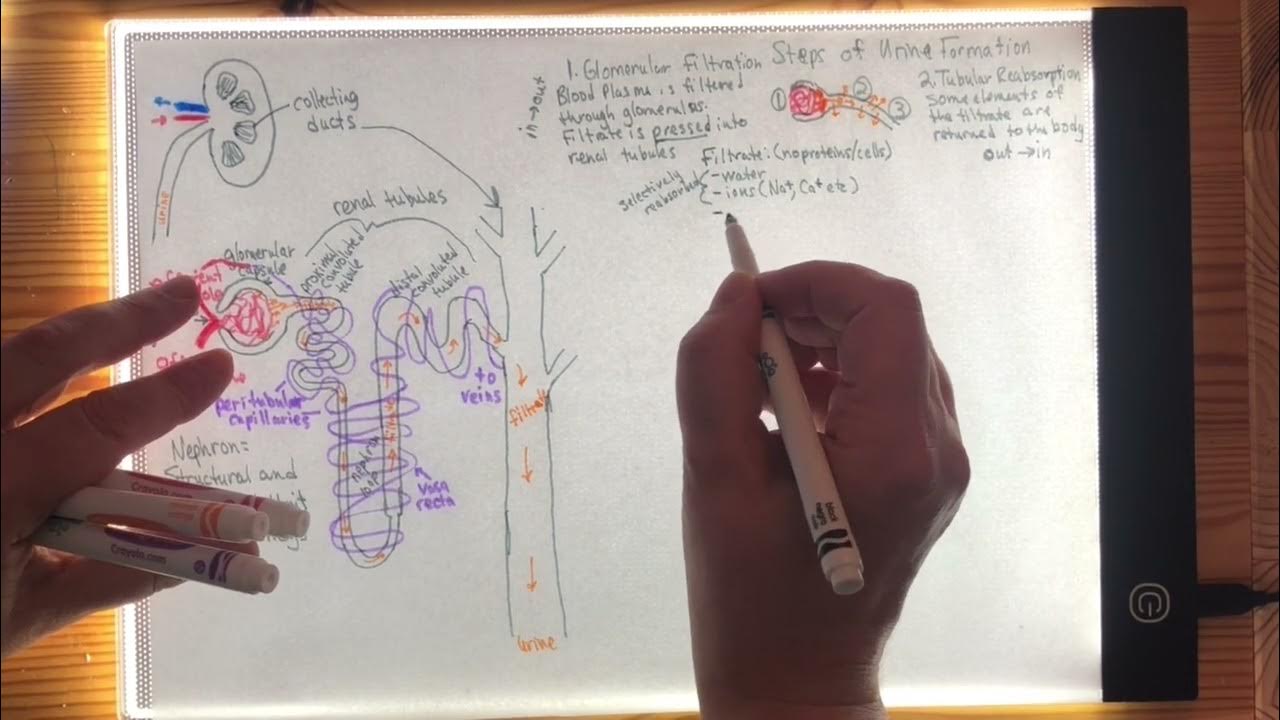 Steps of Urine Formation
1. Glomerular Filtration
Blood Plasma is filtered
through glomerulus.
Filtrate is pressed into
renal tubules
in → out
① ② ③
2. Tubular Reabsorption
Some elements of
the filtrate are
returned to the body
out → in
Filtrate: (no proteins/cells)
- water
- ions (Na+, Ca+ etc)
-
selectively
reabsorbed
collecting
ducts
urine
renal tubules
glomerular
capsule
proximal
convoluted
tubule
distal
convoluted
tubule
peritubular
capillaries
to
veins
filtrate
nephron
loop
vasa
recta
Nephron=
Structural and
filtrate
urine
Crayola.com
Crayola.com
black
negro